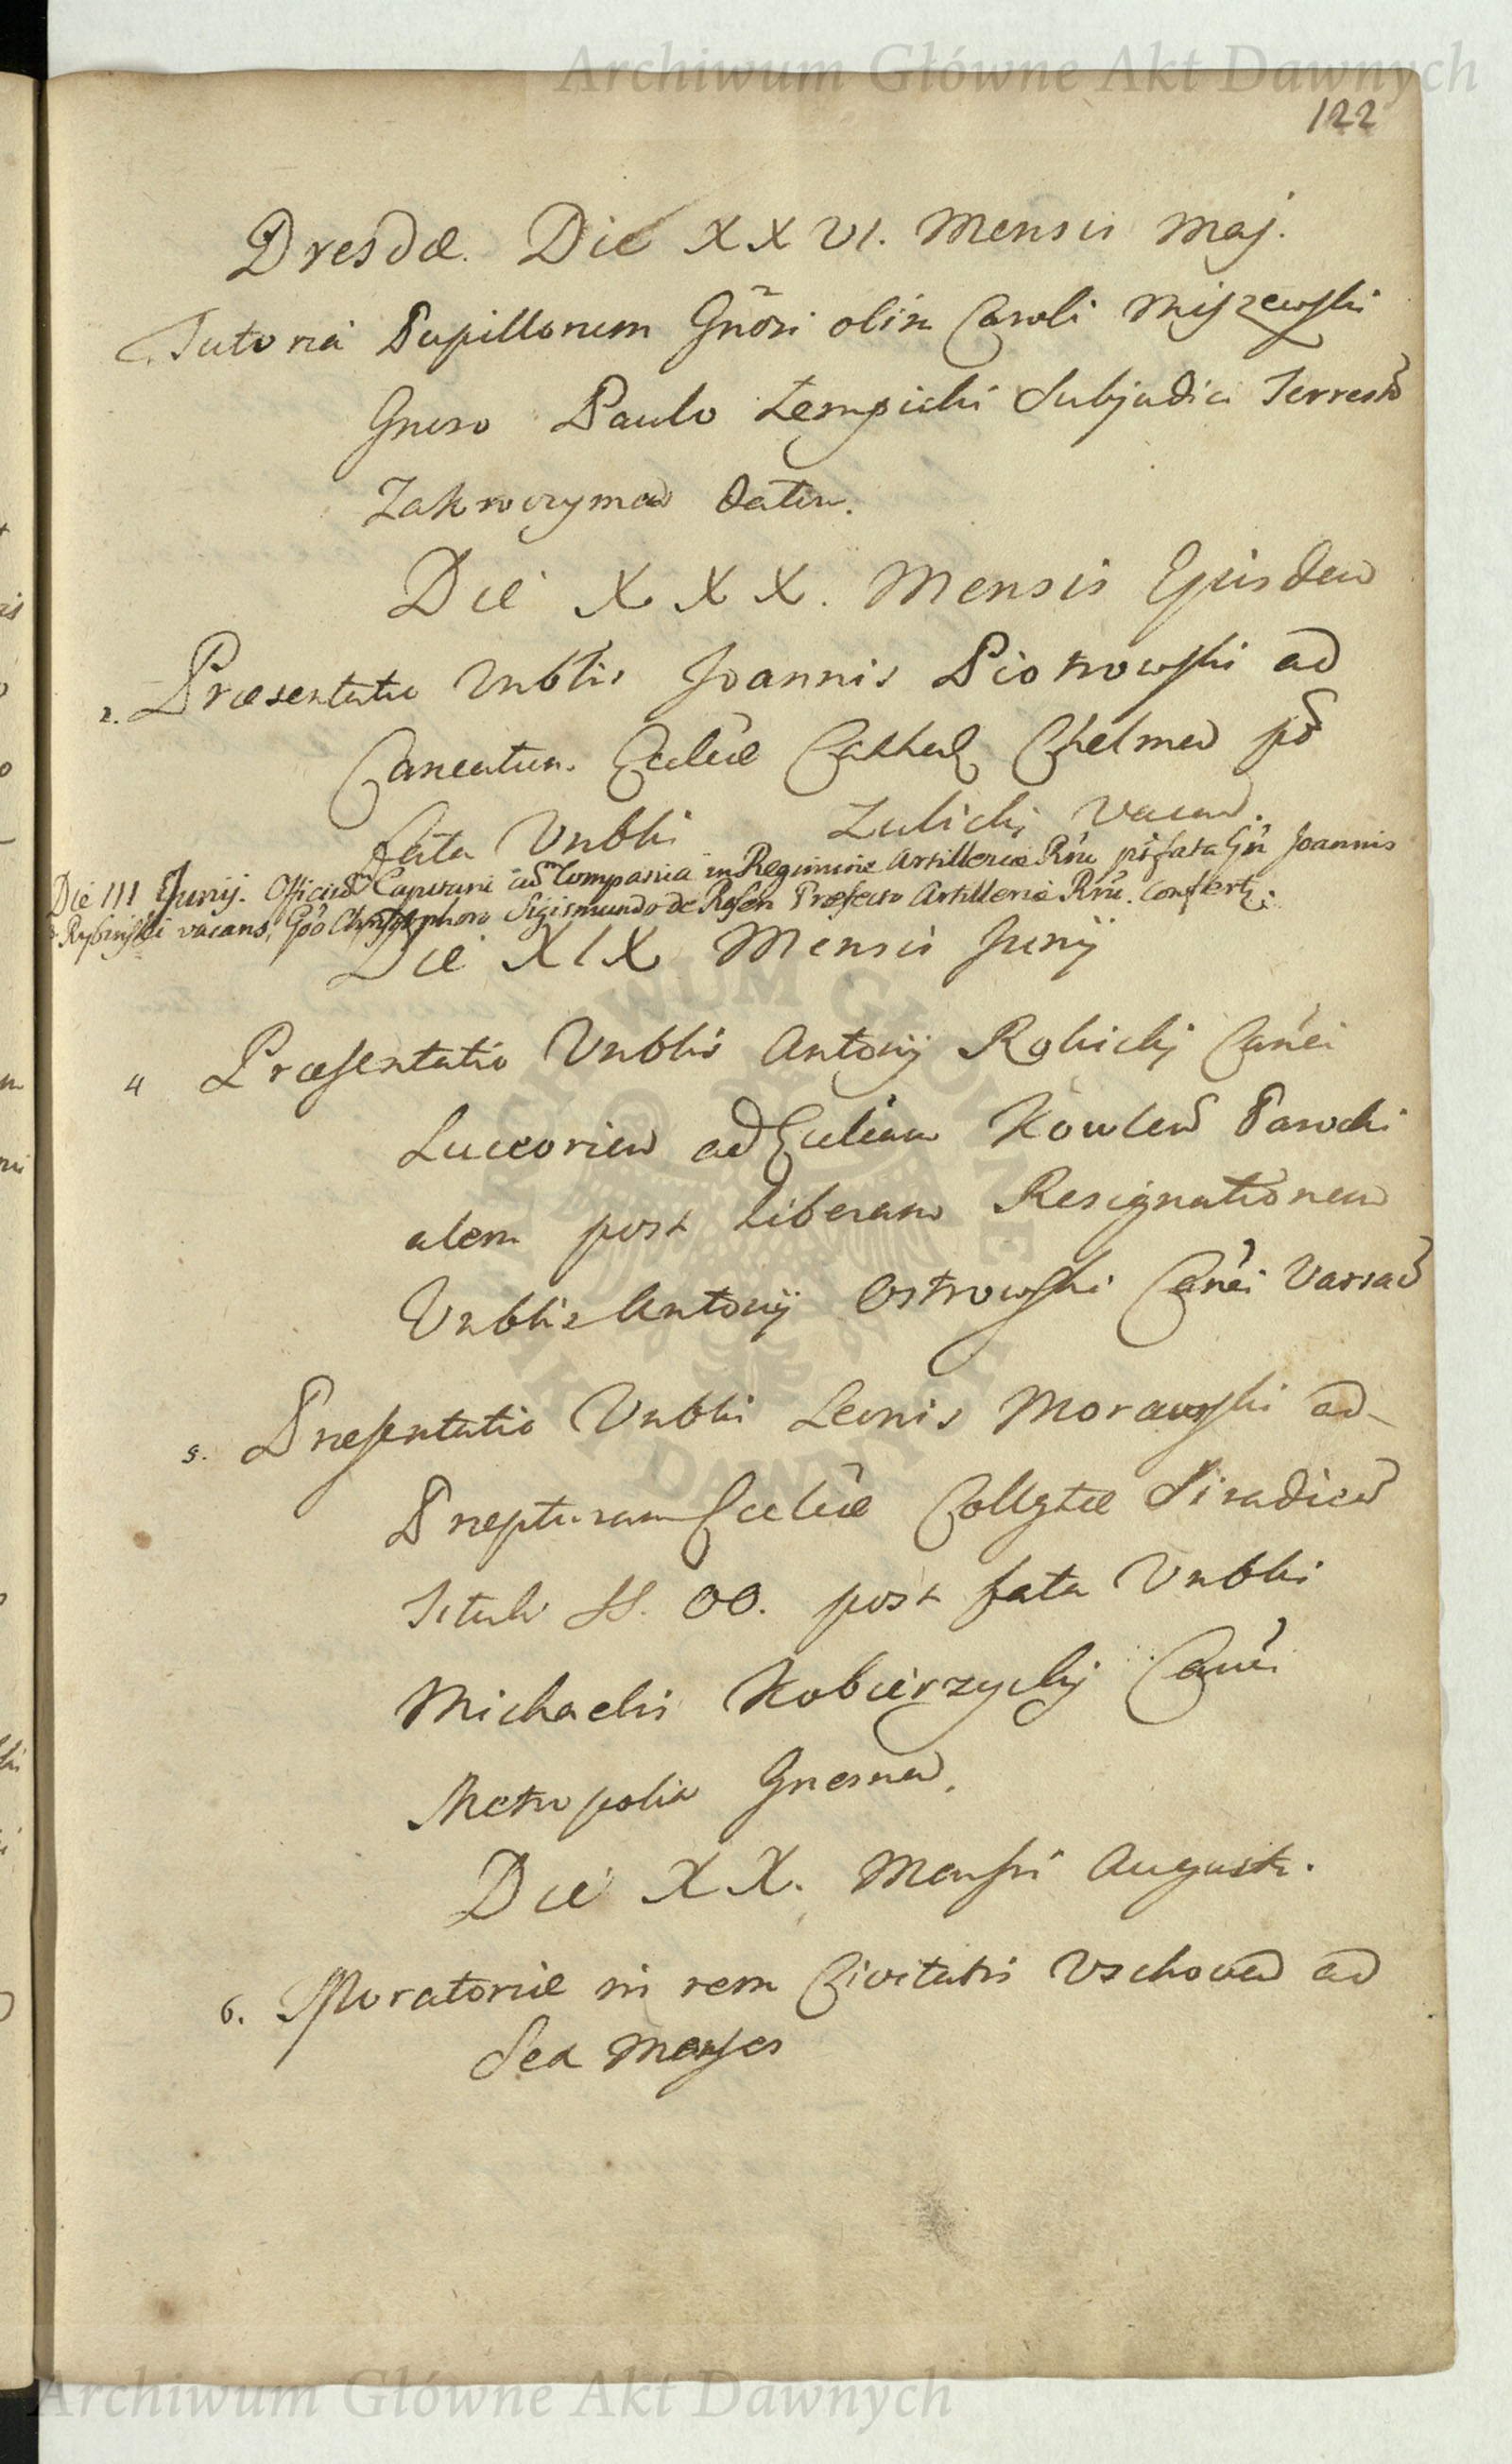 Archiwum Główne Akt Dawnych
122
Dresdæ. Die XXVI. Mensis Maj.
Tutoria Pupillorum Gnõsi olim Caroli Mijzewski
Gnoso Paulo Łempicki Subjudici Terrestr
Zakroczymen datur.
Die XXX. Mensis Ejusdem
2. Præsentatio Vnblis Joannis Piotrowski ad
Cancatum Eccliæ Cathed Chelmen pt
fata Vnbli Zulicki vacan.
Die III Junij. Officium Capitanei ad Compania in Regimine Artilleriæ Rni pt fata Gn Joannis
Rybinski vacans, Gño Chrystophoro Sigismundo de Rosen Præfecto Artilleriæ Rni. Confertr.
Die XIX Mensis Junij
4 Præsentatio Vnblis Antonij Rokicky Canci
Luceorien ad Eccliam Kowlen Parochi
alem post liberam Resignationem
Vnblis Antonij Ostrowski Canci Varsav
5. Præsentatio Vnbli Leonis Morawski ad
Præpturam Eccliæ Collgtæ Siradien
Tituli SS. OO. post fata Vnbli
Michaelis Kobierzycky Canci
Metropolit Gnesnen.
Die XX. Mensis Augusti.
6. Moratoriæ in rem Civitatis Vschoven ad
Sex Menses
Archiwum Główne Akt Dawnych